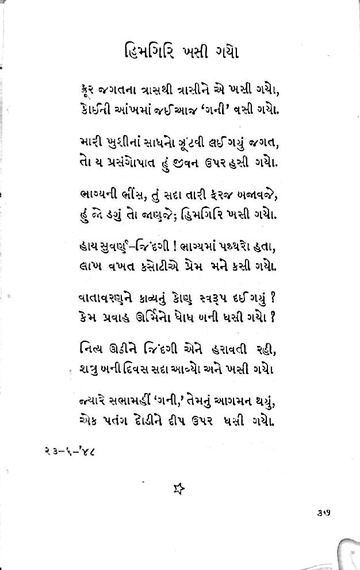 હિમગિરિ ખસી ગયો
ક્રૂર જગતના ત્રાસથી ત્રાસીને એ ખસી ગયો,
કોઈની આંખમાં જઈ આજ ‘ગની’ વસી ગયો.
મારી ખુશીનાં સાધનો ઝૂંટવી લઈ ગયું જગત,
તો ય પ્રસંગોપાત હું જીવન ઉપર હસી ગયો.
ભાગ્યની ભીંસ, તું સદા તારી ફરજ બજાવજે,
હું જો ડગું તો જાણજે; હિમગિરિ ખસી ગયો.
હાય સુવર્ણ–જિંદગી ! ભાગ્યમાં પથ્થરો હતા,
લાખ વખત કસોટીએ પ્રેમ મને કસી ગયો.
વાતાવરણને કાવ્યનું કોણ સ્વરૂપ દઈ ગયું ?
કેમ પ્રવાહ ઊર્મિનો ધોધ બની ધસી ગયો ?
નિત્ય ઊઠીને જિંદગી એને હરાવતી રહી,
શત્રુ બની દિવસ સદા આવ્યો અને ખસી ગયો.
જ્યારે સભામહીં ‘ગની,’ તેમનું આગમન થયું,
એક પતંગ દોડીને દીપ ઉપર ધસી ગયો.
૨૩-૬-’૪૮
૩૭